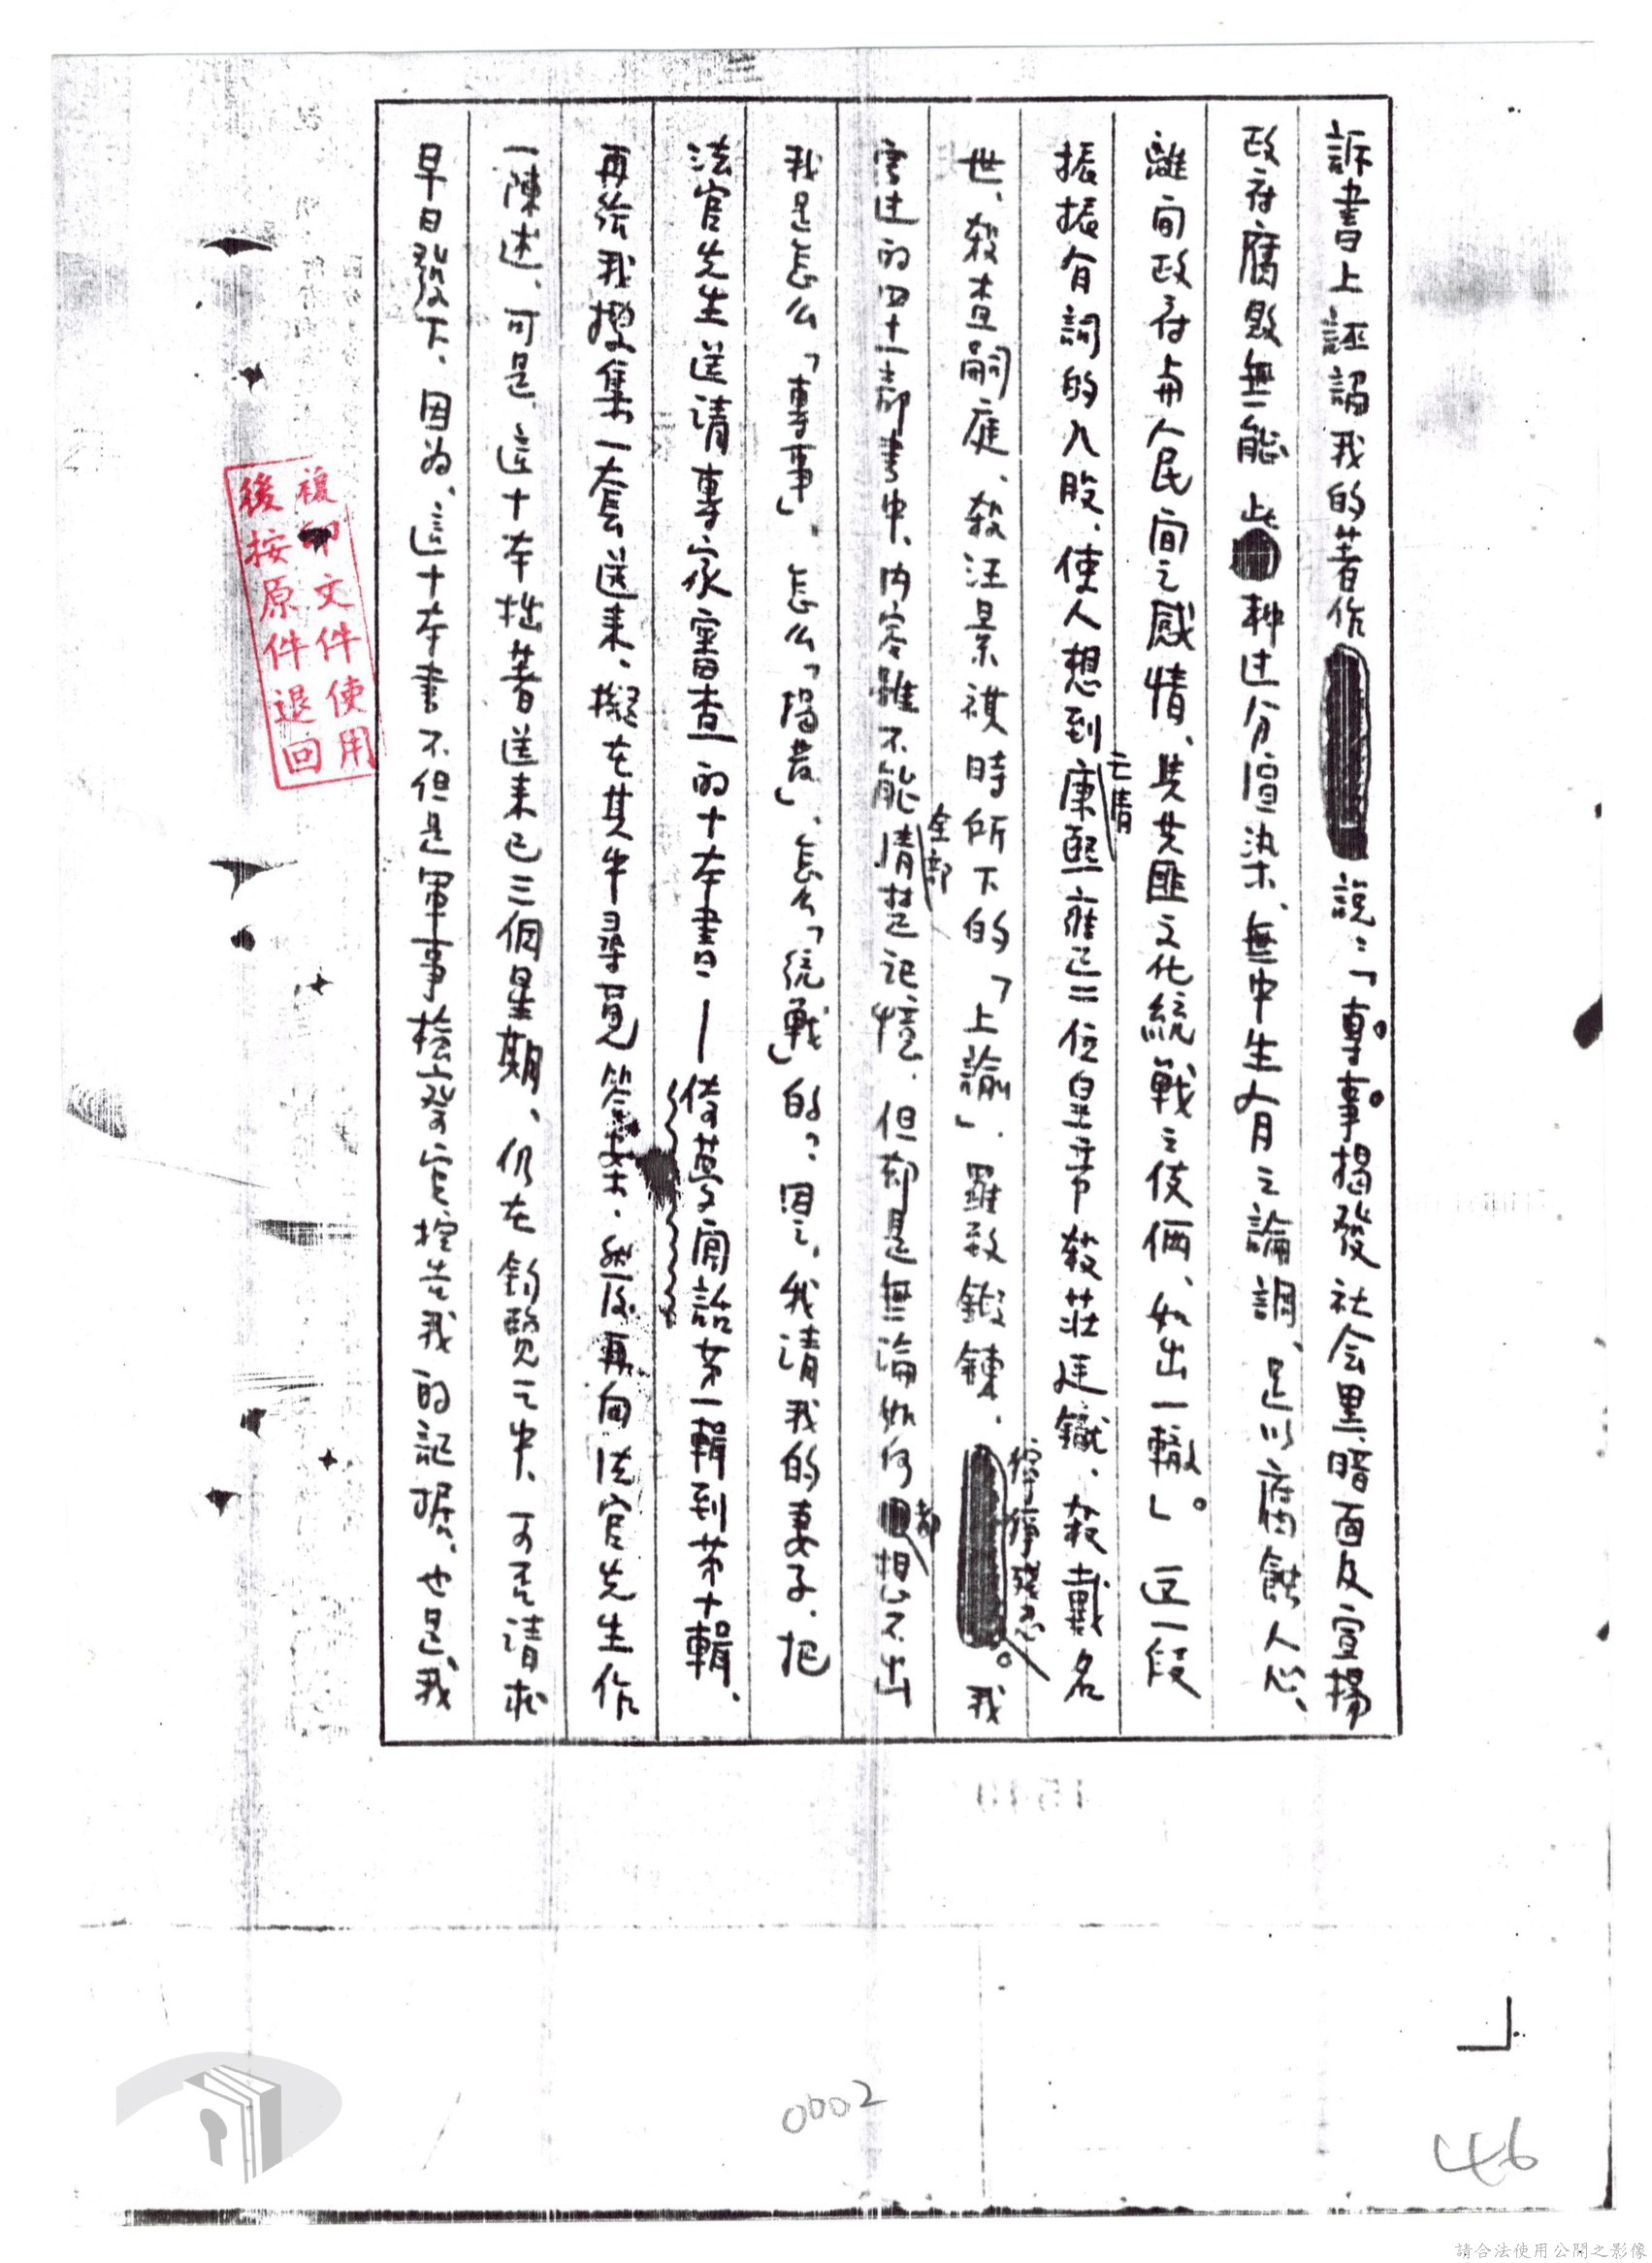 訴書上誣謅我的著作說：「專事揭發社会黑暗面及宣揚
政府腐敗無能此种过分渲染、無中生有之論調、足以腐蝕人心、
離间政府与人民间之感情、与共匪文化統戰之伎俩、如出一轍」。这一段
振振有詞的八股、使人想到亡清康熙雍正二位皇帝殺莊廷鑨、殺戴名
世、殺查嗣庭、殺汪景祺時所下的「上諭」.羅致鍛鍊、狰狰殘忍。我
寫过的四十一部書中、内容雖不能全部清楚记憶、但却是無論如何都想不出
我是怎么「專事」、怎么「揭發」、怎么「统戰」的、因之、我清我的妻子、把
法官先生送请專家審查的十本書——倚夢闲話第一輯到第十輯、
再给我搜集一套送来、擬在其中尋覓答案、然后再向法官先生作
一陳述、可是、这十本拙著送来已三個星期、仍在鈞覽之中、可否请求
早日發下、因为、这十本書不但是軍事檢察官控告我的証据、也是我
複印文件使用
後按原件退回
0002
46
請合法使用公開之影像